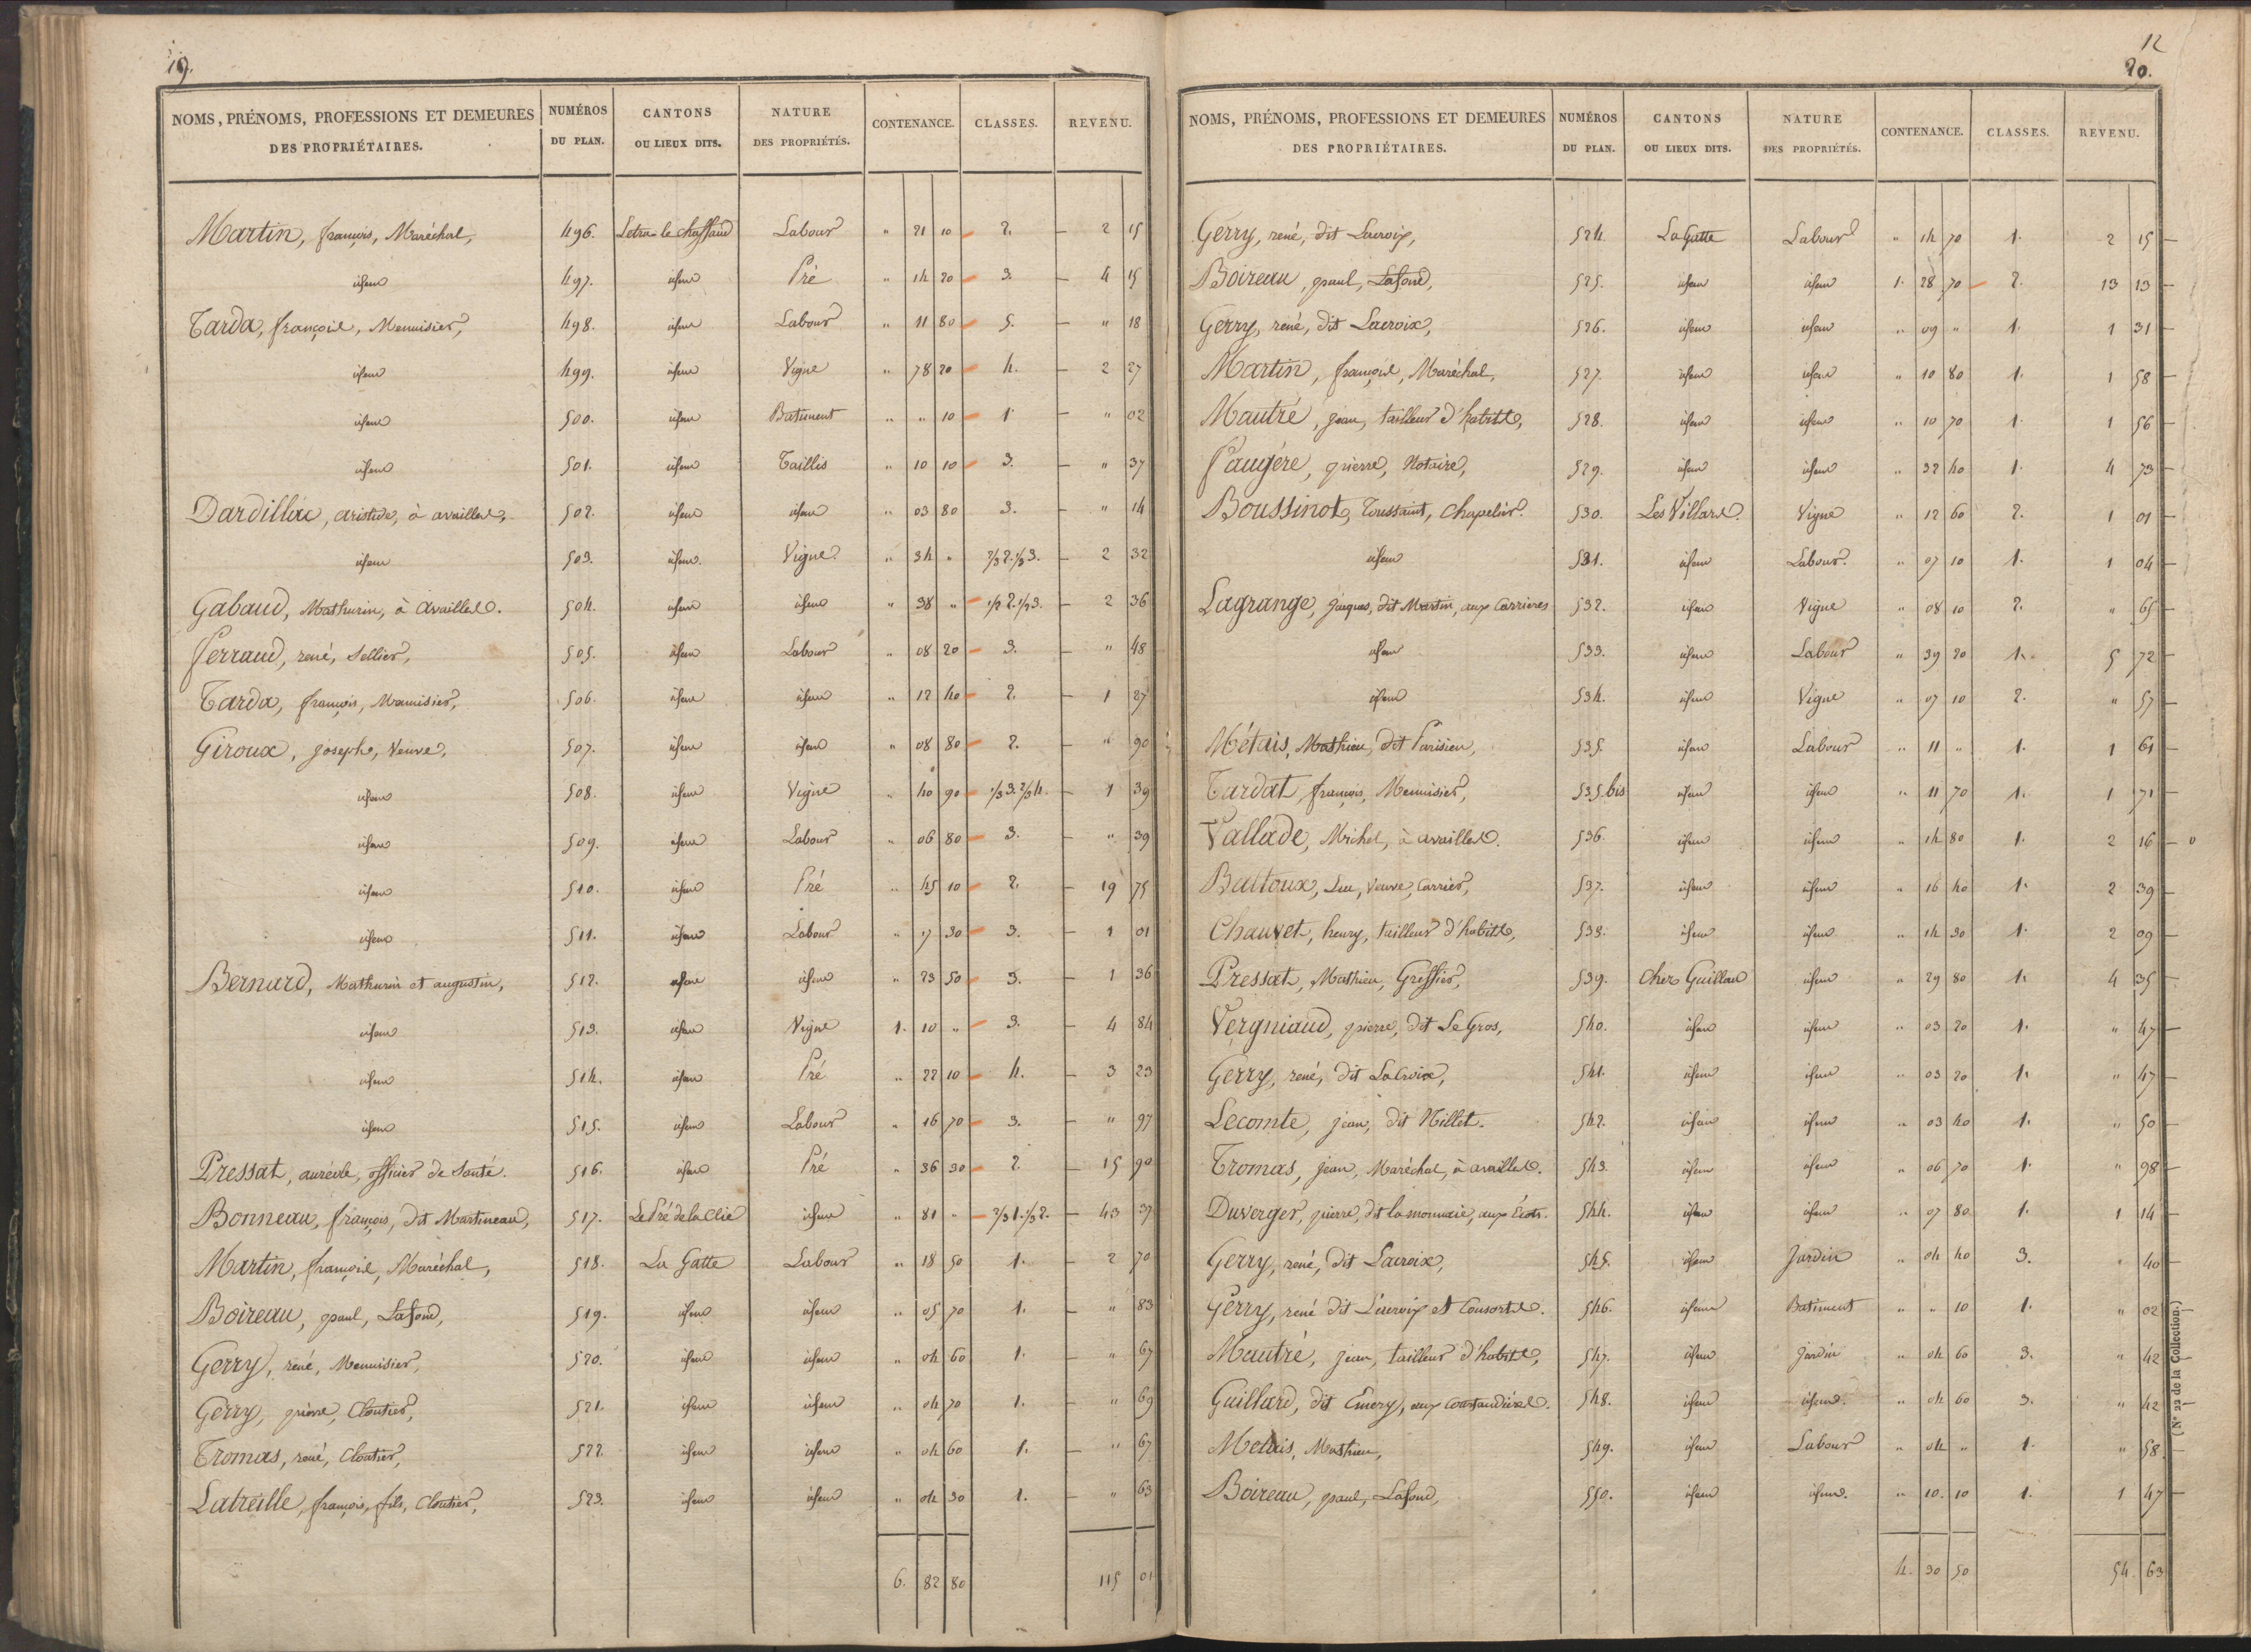 19.
NOMS, PRÉNOMS, PROFESSIONS ET DEMEURES DES PROPRIÉTAIRES. NUMÉROS DU PLAN. CANTONS OU LIEUX DITS. NATURE DES PROPRIÉTÉS. CONTENANCE. CLASSES. REVENU.
Martin, françois, Maréchal, 496. Labour " 21 10 2. 2 15
idem 497. idem Pré " 14 20 3. 4 15
Tarda, françois, Menuisier, 498. idem Labour " 11 80 5. " 18
idem 499. idem Vigne " 78 20 4. 2 27
idem 500. idem Batiment " " 10 1 " 02
idem 501. idem Taillis " 10 10 3. " 37
Dardillac, aristide, à availles, 502. idem idem " 03 80 3. " 14
idem 503. idem Vigne " 34 " 2/3 2. 1/3 3. 2 32
Gabaud, Mathurin, à availles. 504. idem idem " 38 " 1/2 2. 1/2 3. 2 36
Ferraud, rené, Sellier, 505. idem Labour " 08 20 3. " 48
Tarda, françois, Menuisier, 506. idem idem " 12 40 2. 1 27
Giroux, joseph, Veuve, 507. idem idem " 08 80 2. " 90
idem 508. idem Vigne " 40 90 1/3 3. 2/3 4. 1 39
idem 509. idem Labour " 06 80 3. " 39
idem 510. idem Pré " 45 10 2. 19 75
idem 511. idem Labour " 17 30 3. 1 01
Bernard, Mathurin et augustin, 512. idem idem " 23 50 3. 1 36
idem 513. idem Vigne 1. 10 " 3. 4 84
idem 514. idem Pré " 22 10 4. 3 23
idem 515. idem Labour " 16 70 3. " 97
Pressat, officier de Santé. 516. idem Pré " 36 30 2 15 90
Bonneau, françois, dit Martineau, 517. Le Pré de la Clie idem " 81 " 2/3 1. 1/3 2. 43 37
Martin, françois, Maréchal, 518. La Gatte Labour " 18 50 1. 2 70
Boireau, paul, Lafond, 519. idem idem " 05 70 1. " 83
Gerry, rené, Menuisier, 520. idem idem " 04 60 1. " 67
Gerry, pierre, Cloutier, 521. idem idem " 04 70 1. " 69
Tromas, rené, Cloutier, 522. idem idem " 04 60 1. " 67
Latreille, françois, fils, Cloutier, 523. idem idem " 04 30 1. " 63
6. 82 80 115 01
12
20.
NOMS, PRÉNOMS, PROFESSIONS ET DEMEURES DES PROPRIÉTAIRES. NUMÉROS DU PLAN. CANTONS OU LIEUX DITS. NATURE DES PROPRIÉTÉS. CONTENANCE. CLASSES. REVENU.
Gerry, rené, dit Lacroix, 524. La Gatte Labour " 14 70 1. 2 15
Boireau, paul, Lafond, 525. idem idem 1. 28 70 2. 13 13
Gerry, rené, dit Lacroix, 526. idem idem " 09 " 1. 1 31
Martin, françois, Maréchal, 527. idem idem " 10 80 1. 1 58
Mautré, jean, tailleur d'habits, 528. idem idem " 10 70 1. 1 56
Faugère, pierre, Notaire, 529. idem idem " 32 40 1. 4 73
Boussinot, Toussaint, Chapelier. 530. Les Villars. Vigne " 12 60 2. 1 01
idem 531. idem Labour. " 07 10 1. 1 04
Lagrange, jacques, dit Martin, aux Carrieres 532. idem Vigne " 08 10 2. " 65
idem 533. idem Labour " 39 20 1. 5 72
idem 534. idem Vigne " 07 10 2. " 57
Métais, Mathieu, dit Parisien, 535. idem Labour " 11 " 1. 1 61
Tardat, françois, Menuisier, 535. bis idem idem " 11 70 1. 1 71
Vallade, Michel, à availles. 536. idem idem " 14 80 1. 2 16
Baltoux, Luc, Veuve, Carrier, 537. idem idem " 16 40 1. 2 39
Chauvet, henry, tailleur d'habits, 538. idem idem " 14 30 1. 2 09
Pressat, Mathieu, Greffier, 539. Chez Guillau idem " 29 80 1. 4 35
Vergniaud, pierre, dit Le Gros, 540. idem idem " 03 20 1. " 47
Gerry, rené, dit LaCroix, 541. idem idem " 03 20 1. " 47
Lecomte, jean, dit Millet. 542. idem idem " 03 40 1. " 50
Tromas, jean, Maréchal, à availles. 543. idem idem " 06 70 1. " 98
Duverger, pierre, dit la monnaie, aux 544. idem idem " 07 80 1. 1 14
Gerry, rené, dit Lacroix, 545. idem Jardin " 04 40 3. " 40
Gerry, rené dit Lacroix et Consorts. 546. idem Batiment " " 10 1. " 02
Mautré, jean, tailleur d'habits, 547. idem Jardin " 04 60 3. " 42
Guillard, dit Emery, aux 548. idem idem. " 04 60 3. " 42
Metais, Mathieu, 549. idem Labour " 04 " 1. " 58
Boireau, paul, Lafond, 550. idem idem. " 10. 10 1. 1 47
4. 30 50 54. 63
(N° 22 de la Collection.)